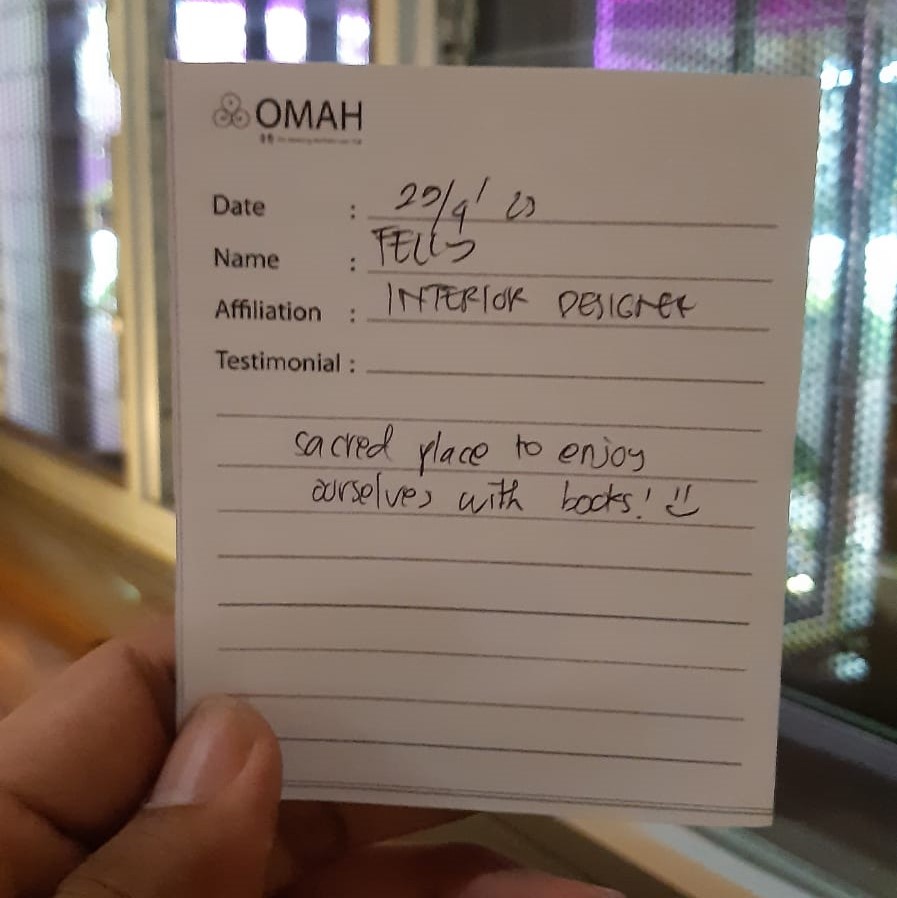 OMAH
Date :
Name :
Affiliation : INTERIOR DESIGNER
Testimonial :
sacred place to enjoy
ourselves with books! :)